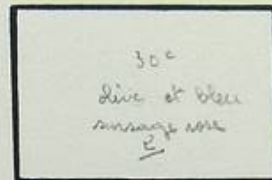 30 c
olive et bleu
sur sauge rose